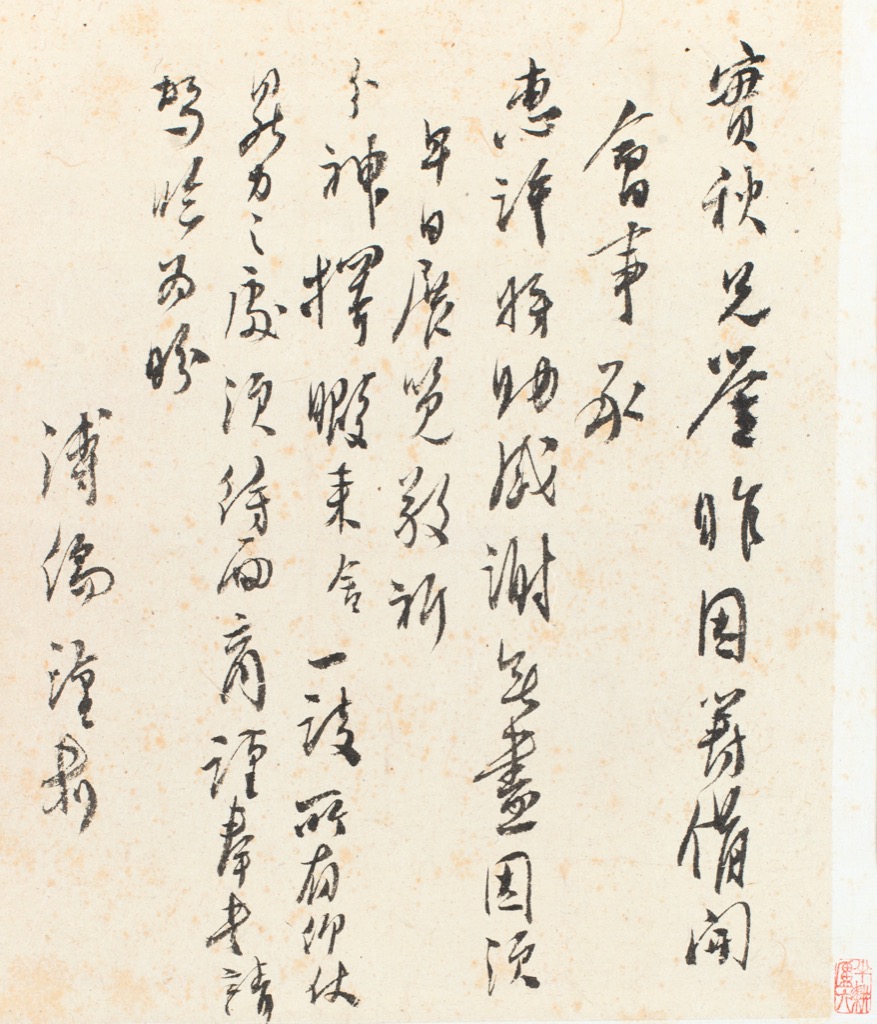 實秋兄鑒昨因籌備開
會事承
惠許將助感謝無盡因須
早日展覽敬祈
分神擇暇來舍一談所有仰仗
鼎力之處須待面商謹奉書請
駕臨為盼
溥儒謹